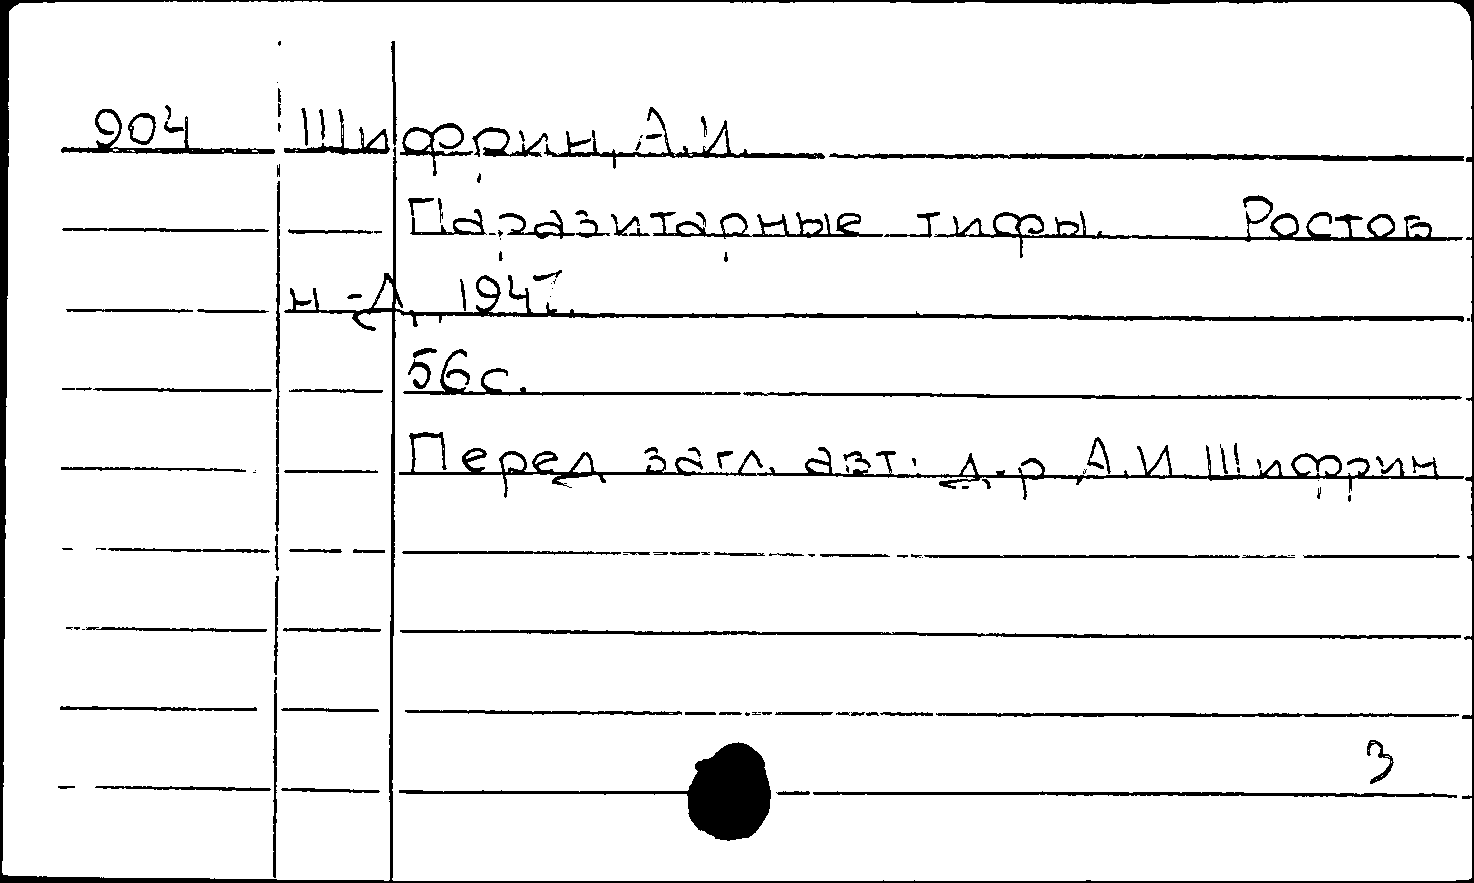 904 Шифрин, А.И.
Паразитарные тифы. Ростов
н-Д., 1947.
56 с.
Перед загл. авт.: д-р А.И Шифрин
3